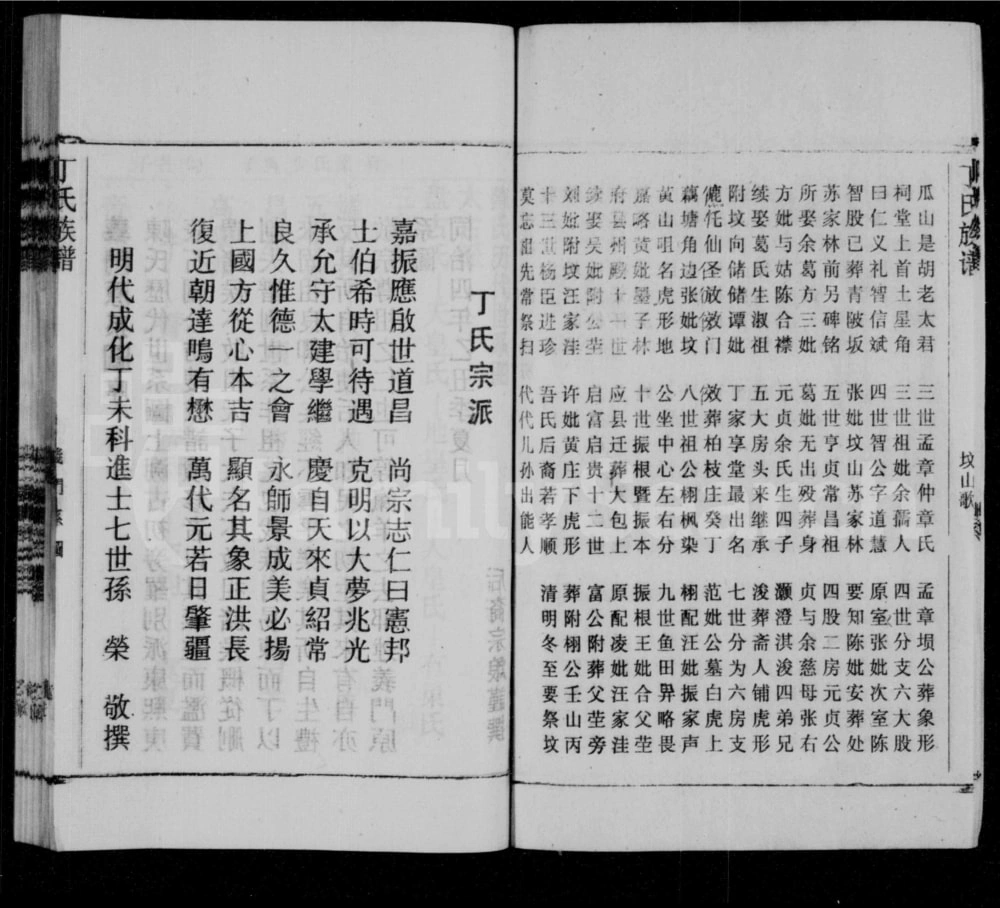 丁氏族谱
坟山歌
瓜山是胡老太君　三世孟章仲章氏　孟章坝公葬象形
祠堂上首土星角　三世祖妣余孺人　四世分支六大股
曰仁义礼智信斌　四世智公字道慧　原室张妣次室陈
智股已葬青陂坂　张妣坟山苏家林　要知陈妣安葬处
苏家林前另碑铭　五世亨贞常昌祖　四股二房元贞公
娶余葛方三妣　葛妣无出殁葬身　贞与余慈母张右
方妣与姑陈合襟　元贞余氏生四子　灏澄淇浚四弟兄
续娶葛氏生淑祖　五大房头来继承　浚葬斋人铺虎形
附坟向储储谭妣　丁家享堂最出名　七世分为六房支
仙圣放效门　效葬柏枝庄癸丁　范妣公墓白虎上
藕塘角边张妣坟　八世祖公栩枫染　栩配汪妣振家声
黄山咀名虎形地　公坐中心左右分　九世鱼田异略畏
嘉略黄妣墨子林　十世振根暨振本　振根王妣合父茔
府县州殿十一世　应县迁葬大包上　原配凌妣汪家洼
续娶吴妣附公茔　启富启贵十二世　富公附葬父茔旁
刘妣附坟汪家洼　许妣黄庄下虎形　葬附栩公壬山丙
十三世杨臣进珍　吾氏后裔若孝顺　清明冬至要祭坟
莫忘祖先常祭扫　代代儿孙出能人
丁氏宗派
嘉振應啟世道昌　尚宗志仁曰憲邦
士伯希時可待遇　克明以大夢兆光
承允守太建學繼　慶自天來貞紹常
良久惟德之會　永師景成美必揚
上國方從心本吉　顯名其象正洪長
復近朝達鳴有懋　萬代元若日肇疆
明代成化丁未科進士七世孫　榮　敬撰
丁氏族譜